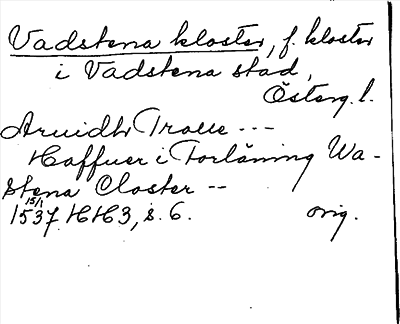 Vadstena kloster, f. kloster
i Vadstena stad,
Österg. l.
Aruidh Trolle ---
Haffuer i Forläning Wa-
stena Closter --
15/1
1537 HH3, s. 6. orig.